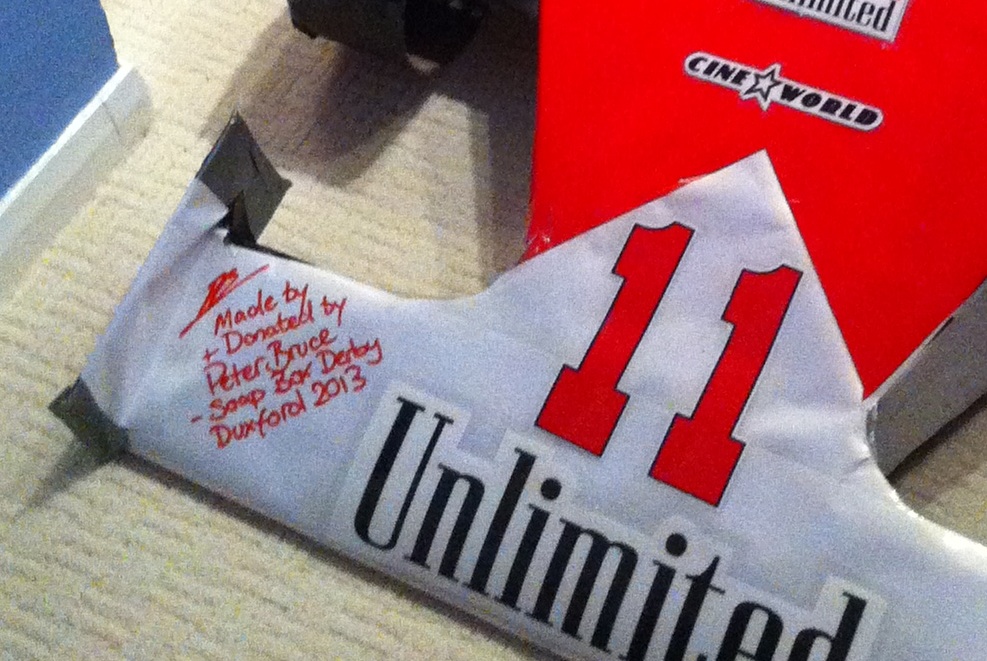 CINE WORLD
11
Made by
+ Donated by
Peter Bruce
- Soap Box Derby
Duxford 2013
Unlimited